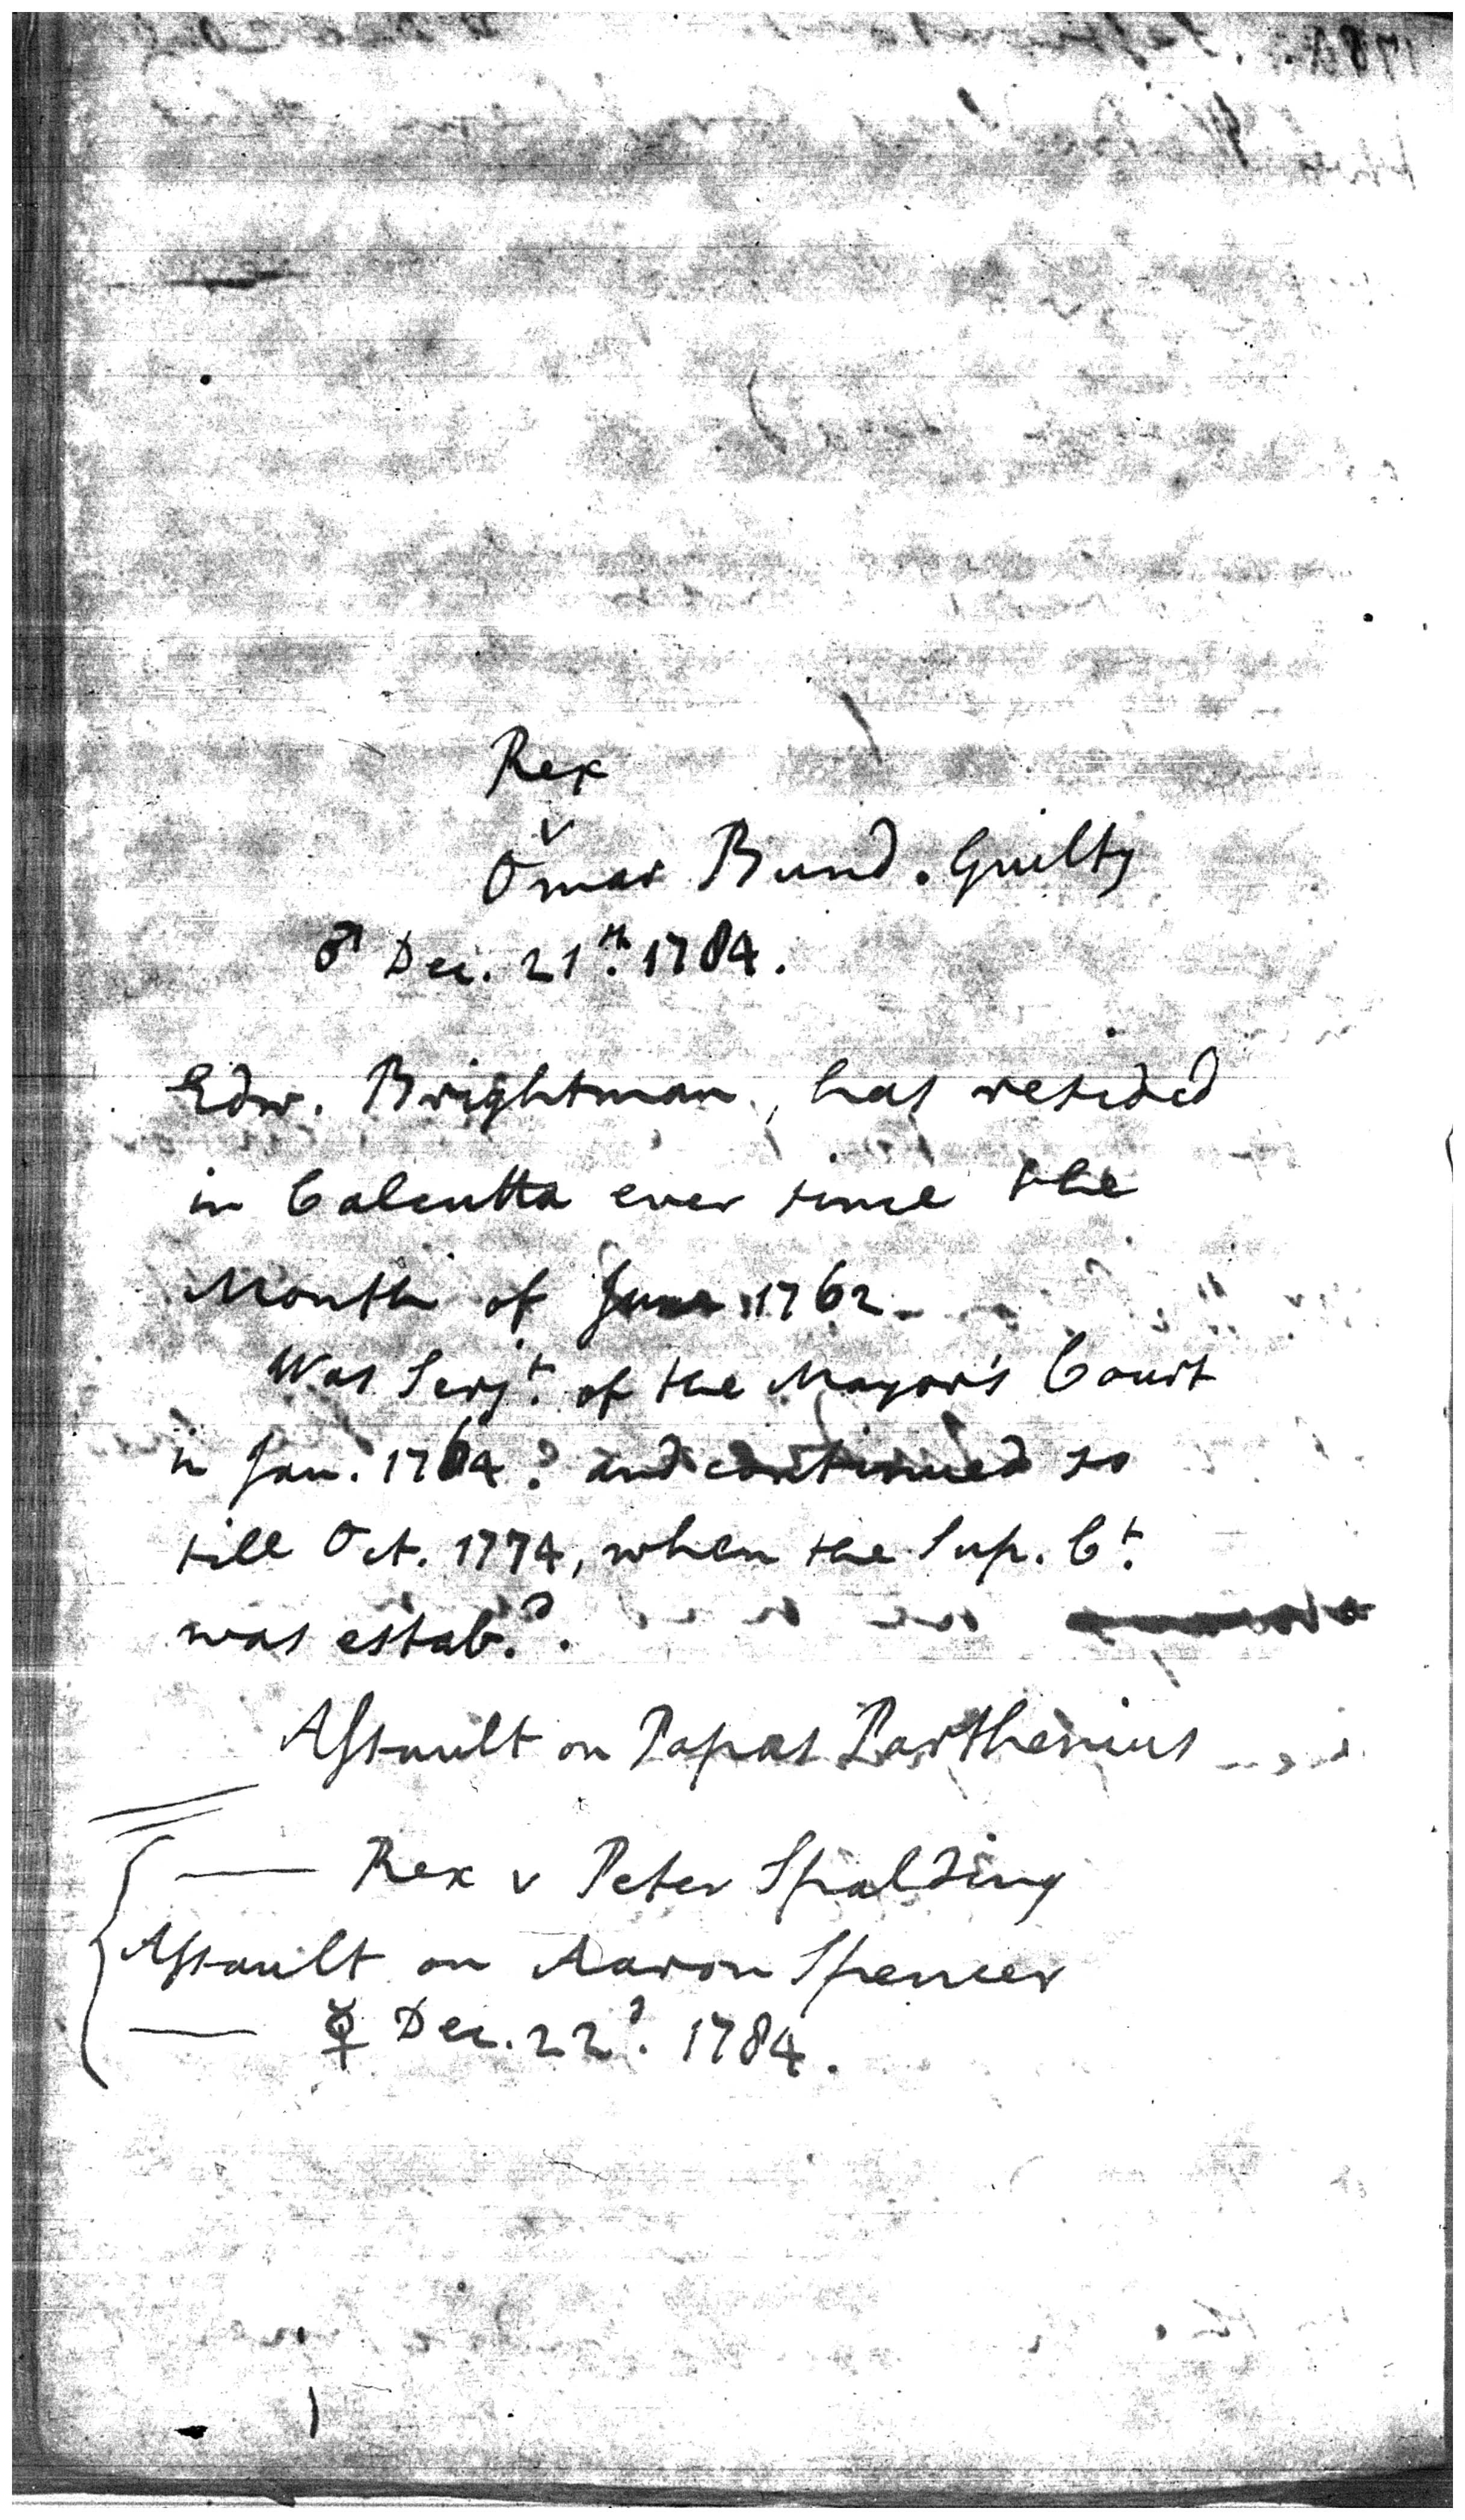 Rex
v
Omar Bund. Guilty
♂ Dec. 21.th 1784.
Edw. Brightman, has resided
in Calcutta ever since the
Month of June 1762.
Was Serj.t of the Mayor's Court
in Jan. 1764. and continued so
till Oct. 1774, when the Sup. C.t
was estab.d.
Assault on Papas Parthenius
Rex v Peter Spalding
Assault on Aaron Spencer
☿ Dec. 22.d 1784.